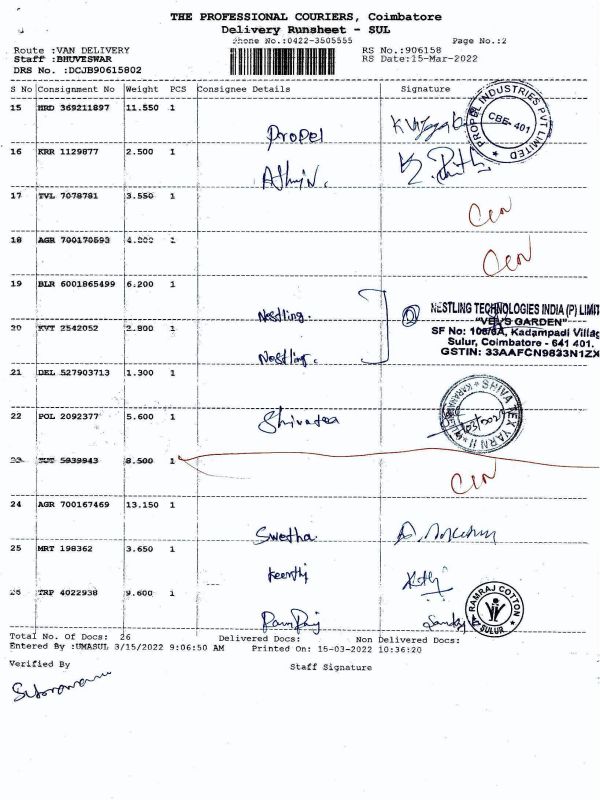 THE PROFESSIONAL COURIERS, Coimbatore
Delivery Runsheet - SUL
Phone No.:0422-3505555
Page No.:2
Route :VAN DELIVERY
RS No.:906158
Staff :BHUVESWAR
RS Date:15-Mar-2022
DRS No. :DCJB90615802
S No Consignment No Weight PCS Consignee Details Signature
15 HRD 369211897 11.550 1
Propel
PROPEL INDUSTRIES PVT LIMITED
CBE- 401
16 KRR 1129877 2.500 1
17 TVL 7078781 3.550 1
Can
18 AGR 700170593 4.800 1
Can
19 BLR 6001865499 6.200 1
Nestling.
NESTLING TECHNOLOGIES INDIA (P) LIMIT
"VEL'S GARDEN"
SF No: 106/8A, Kadampadi Villag
Sulur, Coimbatore - 641 401.
GSTIN: 33AAFCN9833N1ZX
20 KVT 2542052 2.800 1
Nestling.
21 DEL 527903713 1.300 1
22 POL 2092377 5.600 1
Shivatex
SHIVA TEX YARN
23 5939943 8.500 1
Can
24 AGR 700167469 13.150 1
Swetha
25 MRT 198362 3.650 1
Keerthi
26 TRP 4022938 9.600 1
RamRaj
Sandy
RAMRAJ COTTON
SULUR
Total No. Of Docs: 26 Delivered Docs: Non Delivered Docs:
Entered By :UMASUL 3/15/2022 9:06:50 AM Printed On: 15-03-2022 10:36:20
Verified By
Staff Signature